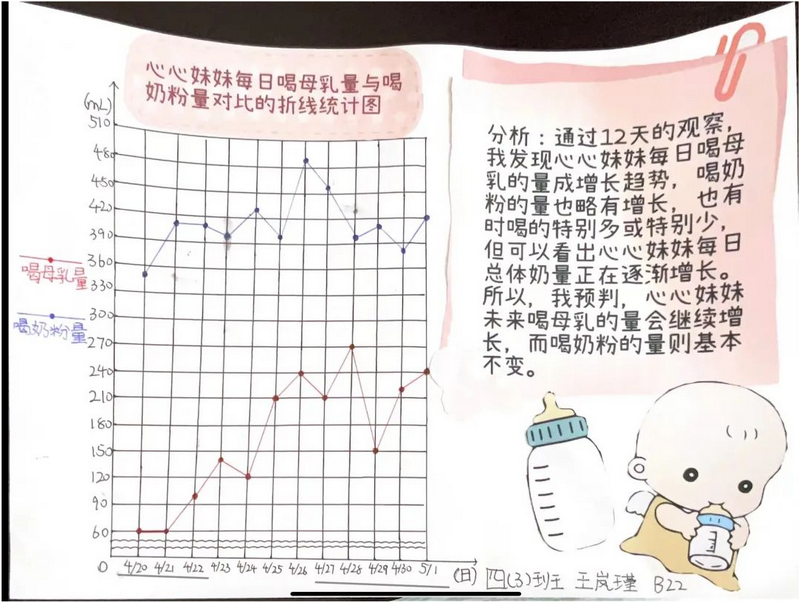 心心妹妹每日喝母乳量与喝
奶粉量对比的折线统计图
(mL)
510
480
450
420
390
360
330
300
270
240
210
180
150
120
90
60
0
喝母乳量
喝奶粉量
4/20 4/21 4/22 4/23 4/24 4/25 4/26 4/27 4/28 4/29 4/30 5/1 (日)
分析：通过12天的观察，
我发现心心妹妹每日喝母
乳的量成增长趋势，喝奶
粉的量也略有增长，也有
时喝的特别多或特别少，
但可以看出心心妹妹每日
总体奶量正在逐渐增长。
所以，我预判，心心妹妹
未来喝母乳的量会继续增
长，而喝奶粉的量则基本
不变。
四(3)班 王岚瑾 B22